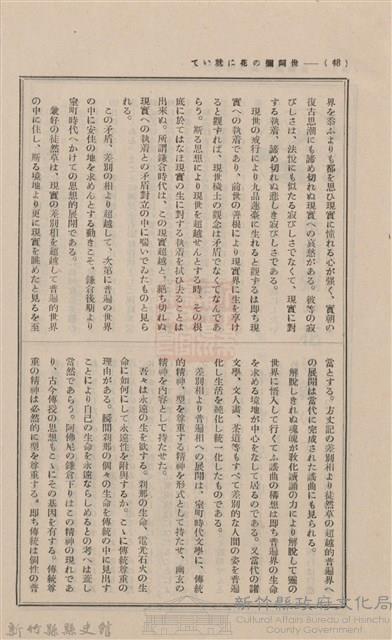 世阿彌の花に就いて ―― (48)
界を黍ふよりも都を思ひ現實に憧れる心が强く、實朝の
復古思潮にも諦め切れぬ現實への哀愁がある。彼等の寂
びしさは、法悅にも似たる寂びしさでなくて、現實に對
する執着、諦め切れぬ悲しき寂びしさである。
現世の戒行により九品蓮臺に生れると觀ずるは卽ち現
實への執着であり、前世の善根により現實界に生を享け
ると觀ずれば、現世穢土の觀念は矛盾でなくてなんであ
らう。斯る思想により現世を超越せんとする時、その根
底に於てはなほ現實の生に對する執着を拭ひ去ることは
出來ぬ。所謂鎌倉時代は、この現實超越と、絕ち切れぬ
現實への執着との矛盾對立の中に喘いでゐたものと見ら
れる。
この矛盾、差別の相より超越して、次第に普遍の世界
の中に安住の地を求めんとする動きこそ、鎌倉後期より
室町時代へかけての思想的展開である。
兼好の徒然草は、現實の差別相を超越して普遍的世界
の中に住し、斯る境地より更に現實を眺めたと見るを至
當とする。方丈記の差別相より徒然草の超越的普遍界へ
の展開は當代に完成された謠曲にも見られる。
解脫しきれぬ魂魄が敎化讀誦の力により解脫して靈の
世界に悟入して行くてふ謠曲の構想は卽ち普遍界の生命
を求める境地が中心をなして居るのである。又當代の諸
文學、文人畫、茶道等もすべて差別的な人間の姿を普遍
化し生活を純化し統一化したものである。
差別相より普遍相への展開は、室町時代文學に、傳統
的精神、型を尊重する精神を形式として持たせ、幽玄の
精神を內容として持たせた。
吾々は永遠の生を欲する。刹那の生命、電光石火の生
命に如何にして永遠性を附與するか。こゝに傳統尊重の
理由がある。瞬間刹那の個々の生命を傳統の中に見出す
ことにより自己の生命を永遠ならしめるとの考へは蓋し
當然であらう。阿佛尼の鎌倉下りはこの精神の現れであ
り、古今傳授の思想もこゝにその基因を有する。傳統尊
重の精神は必然的に型を尊重する。卽ち傳統は個性の普
新竹縣縣史館
新竹縣政府文化局
Cultural Affairs Bureau of Hsinchu
County Government